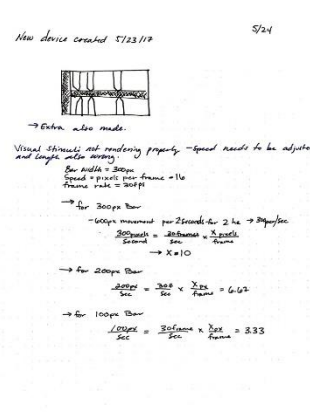 5/24
New device created 5/23/17
→ Extra also made.
Visual Stimuli not rendering properly - Speed needs to be adjuste
and length also wrong.
Bar width = 300px
Speed = pixels per frame = 16
frame rate = 30fps
→ for 300px Bar
- 600px movement per 2 seconds for 2 hz → 300px/sec
300pixels/second = 30frames/sec × X pixels/frame
→ X = 10
→ for 200px Bar
200px/sec = 300/sec × X px/frame = 6.67
→ for 100px Bar
100px/sec = 30frame/sec × X px/frame = 3.33